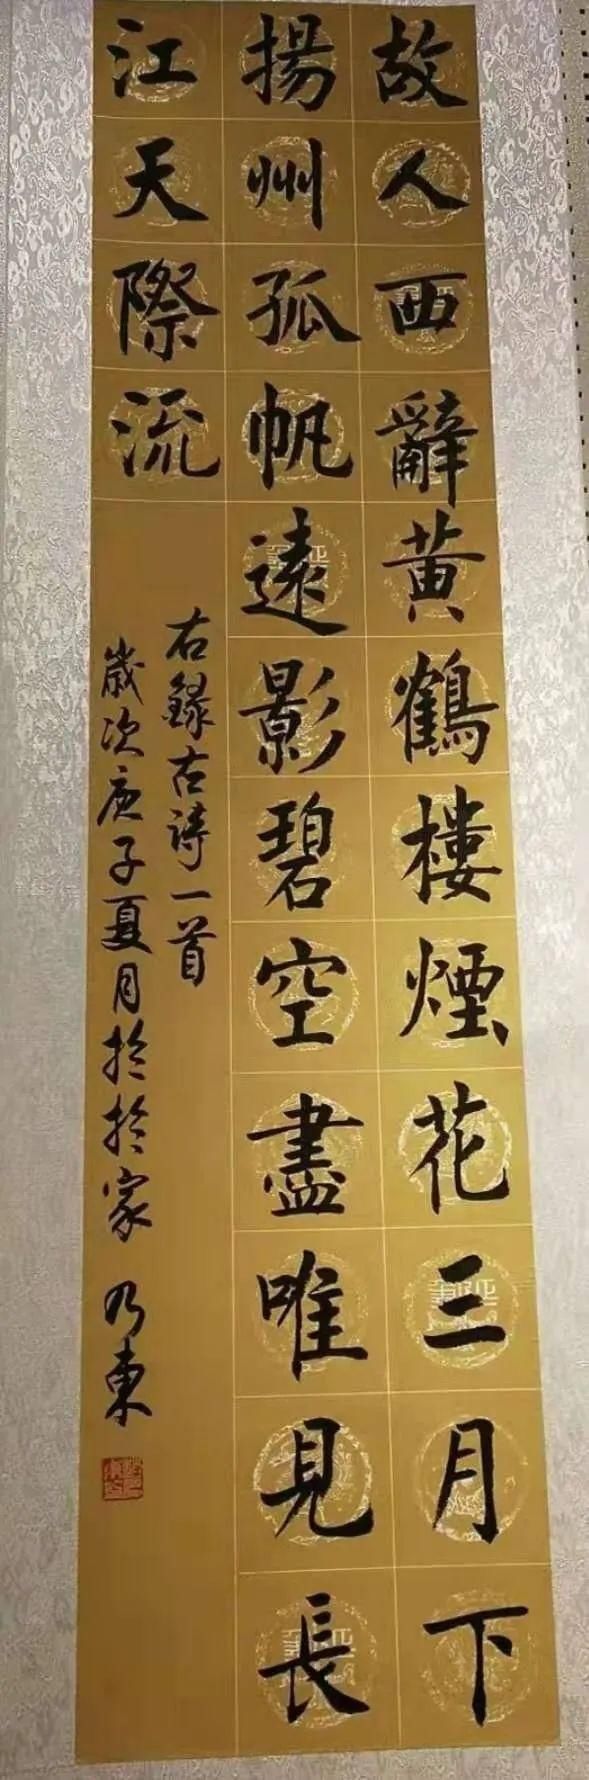 故人西辭黃鶴樓煙花三月下
揚州孤帆遠影碧空盡唯見長
江天際流
右錄古詩一首
歲次庚子夏月於於家 乃東